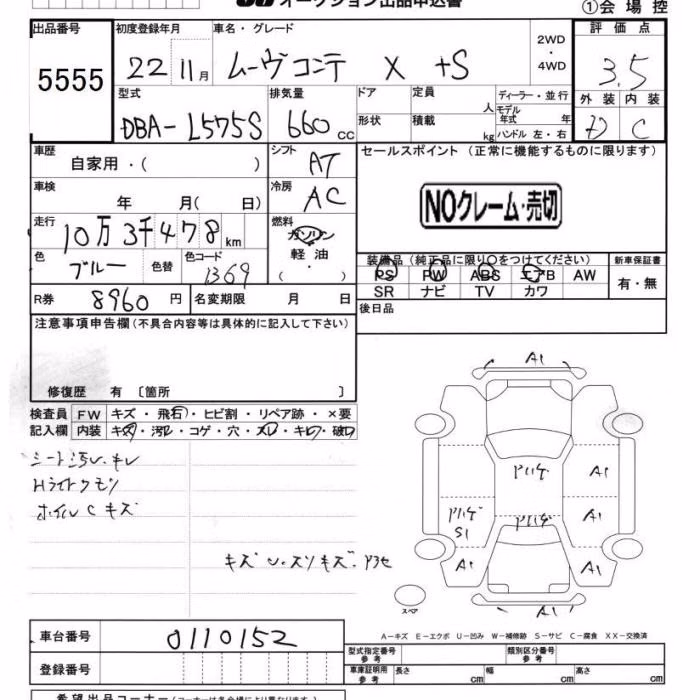 オークション出品申込書
①会場控
出品番号
5555
初度登録年月
22 11月
車名・グレード
ムーヴコンテ X +S
2WD
・
4WD
評価点
3.5
外装 内装
D C
型式
DBA-L575S
排気量
660 cc
ドア
定員 人
ディーラー・並行
形状
積載 kg
モデル年式 年
ハンドル 左・右
車歴
自家用・( )
シフト
AT
車検
年 月( 日)
冷房
AC
セールスポイント (正常に機能するものに限ります)
NOクレーム・売切
走行
10万3千478km
燃料
ガソリン
軽油
・
( )
色
ブルー
色替
色コード
B69
装備品(純正品に限り○をつけてください)
新車保証書
PS PW ABS エアB AW
SR ナビ TV カワ
有・無
R券 8960円
名変期限 月 日
後日品
注意事項申告欄(不具合内容等は具体的に記入して下さい)
修復歴 有 〔箇所 〕
検査員
記入欄
FW キズ・飛石・ヒビ割・リペア跡・×要
内装 キズ・汚レ・コゲ・穴・スレ・キレ・破レ
シート汚レ・キレ
Hライトクモリ
ホイルC キズ
A1
A1
A1
A1
A1
S1
A1
スペア
A-キズ E-エクボ U-凹み W-補修跡 S-サビ C-腐食 XX-交換済
車台番号
0110152
登録番号
型式指定番号
参考
類別区分番号
参考
車庫証明用
参考
長さ cm 幅 cm 高さ cm
希望出品コーナー